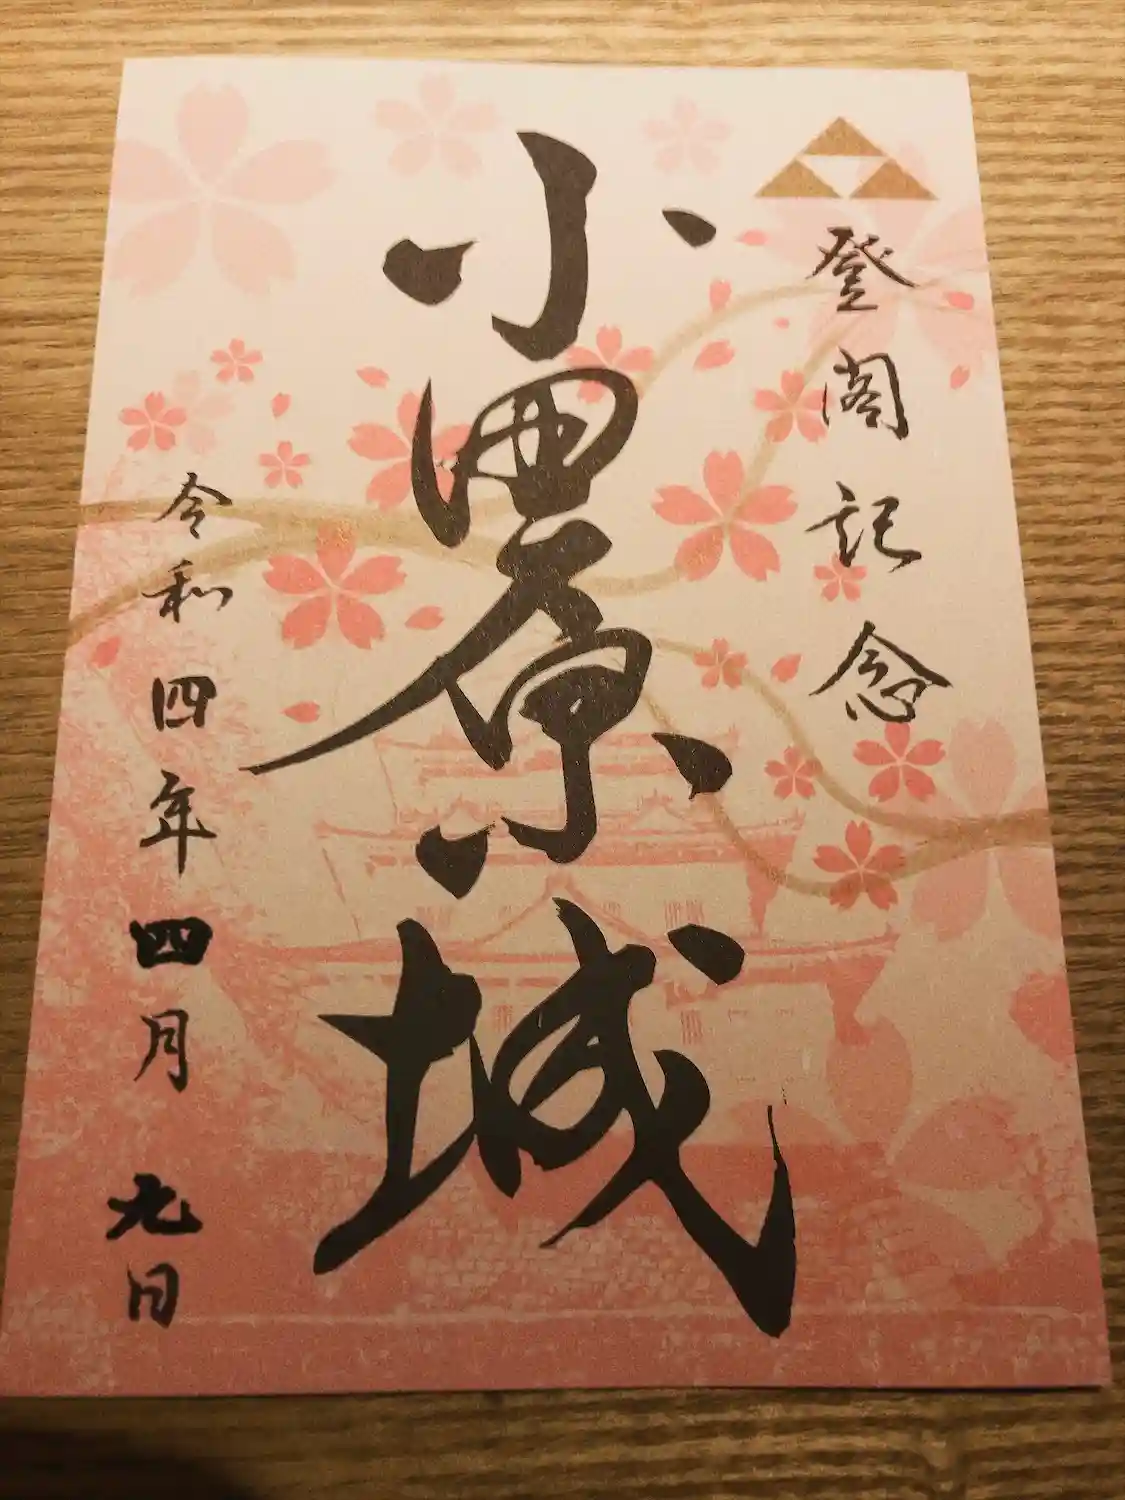 登閣記念
小田原城
令和四年四月九日